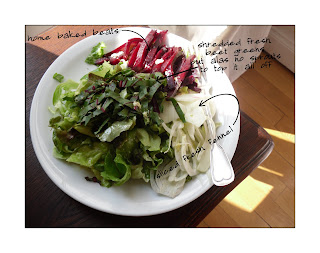 home baked beets
shredded fresh
beet greens
but alas no sprouts
to top it all off
sliced fresh fennel